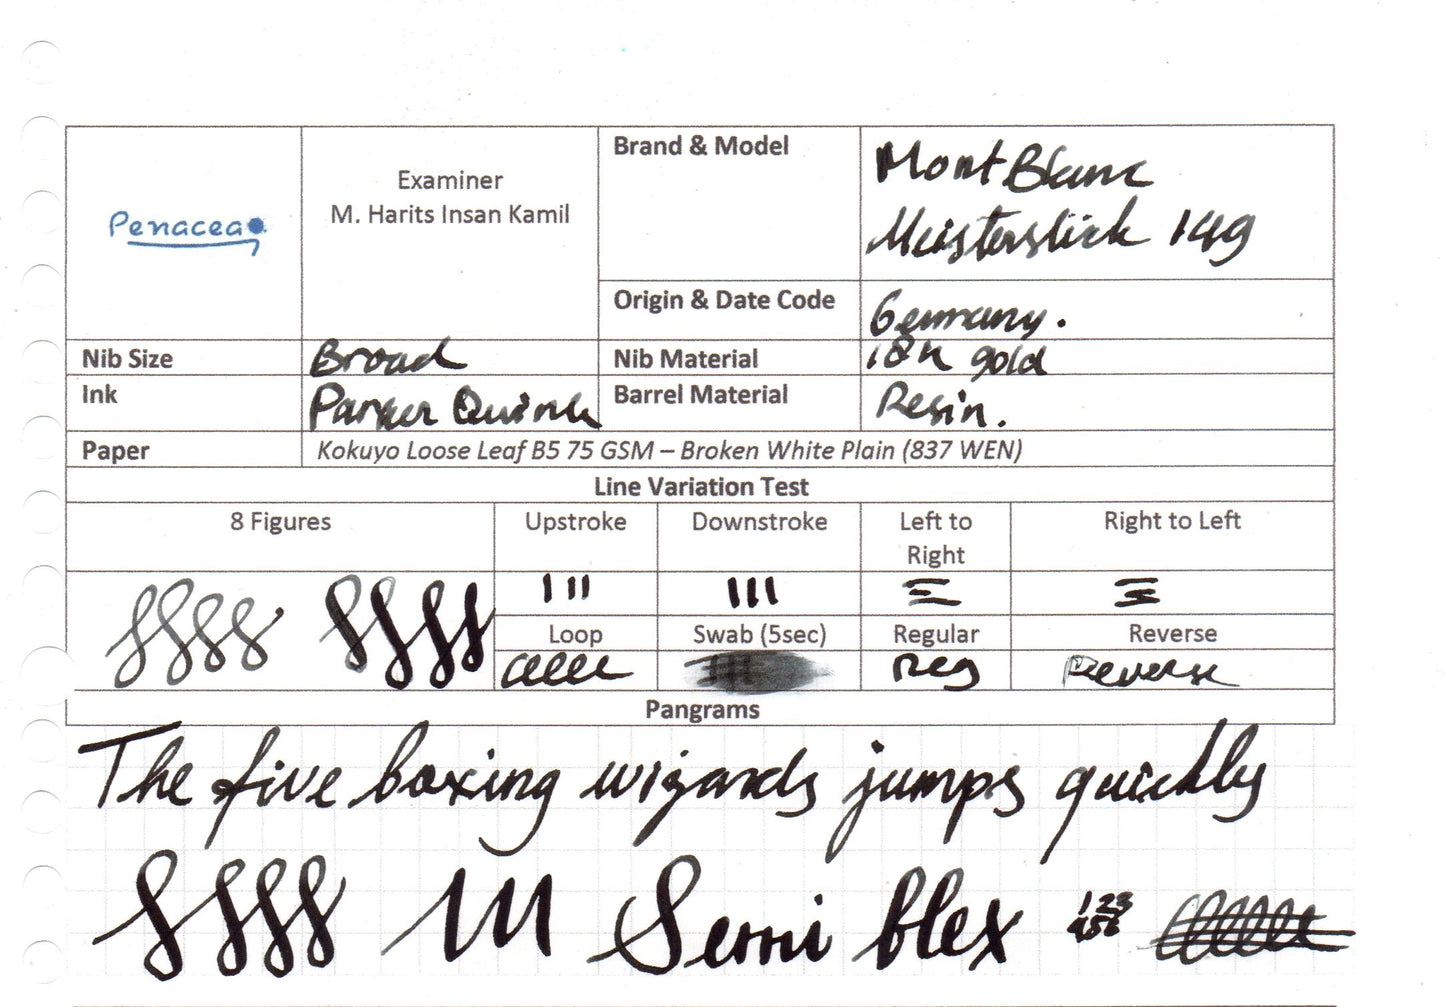 Penacea
Examiner
M. Harits Insan Kamil
Brand & Model
MontBlanc
Meisterstick 149
Origin & Date Code
Germany.
Nib Size
Broad
Nib Material
18k gold
Ink
Parker Quink
Barrel Material
Resin.
Paper
Kokuyo Loose Leaf B5 75 GSM – Broken White Plain (837 WEN)
Line Variation Test
8 Figures
Upstroke
Downstroke
Left to
Right
Right to Left
Loop
Swab (5sec)
Regular
Reverse
Reg
Reverse
Pangrams
The five boxing wizards jumps quickly
Semi flex
123
456